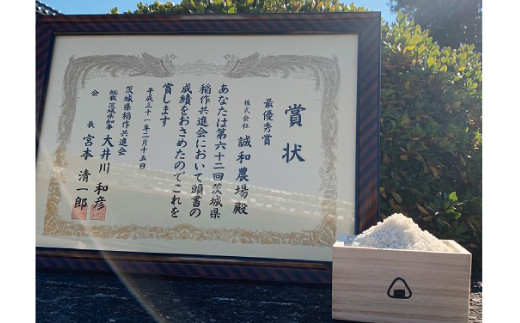 賞状
最優秀賞
株式会社 誠和農場殿
あなたは第六十二回茨城県
稲作共進会において頭書の
成績をおさめたのでこれを
賞します
平成三十一年二月十五日
茨城県稲作共進会
総裁 茨城県知事 大井川和彦
会長 宮本清一郎